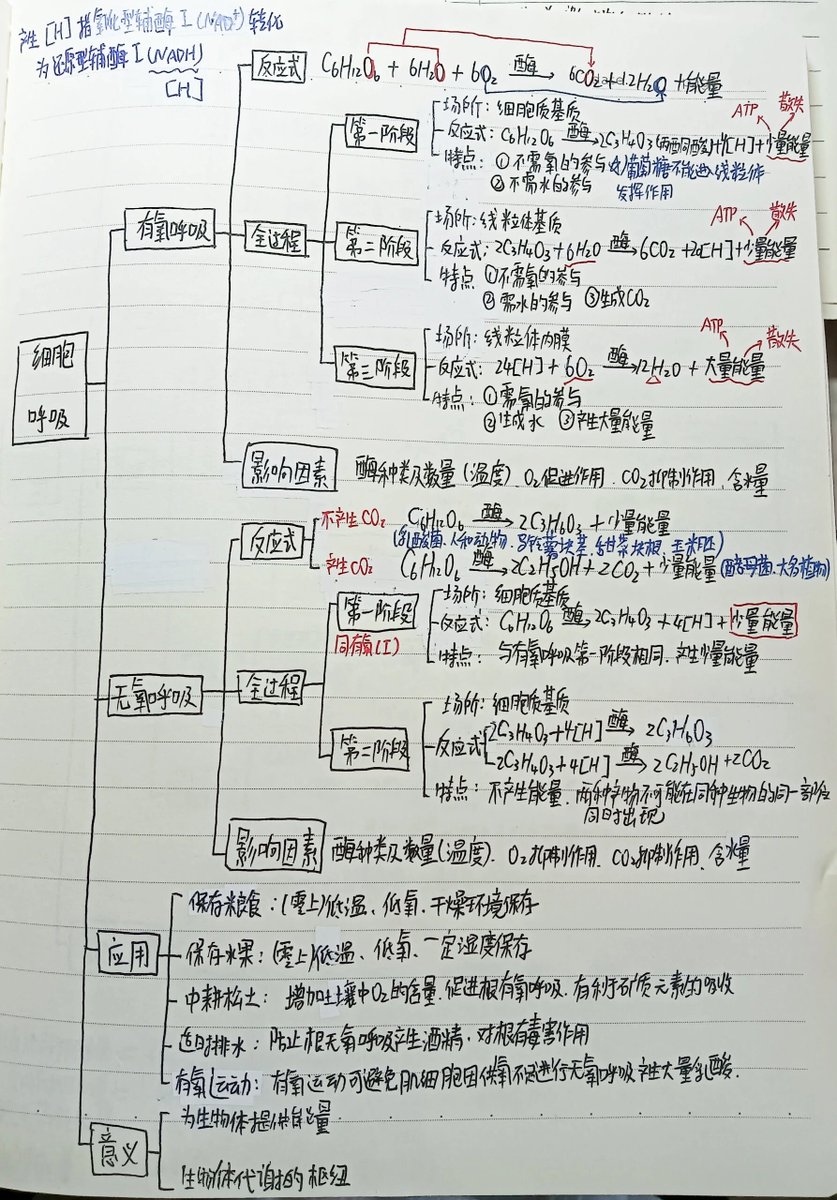 产生[H]指氧化型辅酶I(NAD⁺)转化
为还原型辅酶I(NADH)
[H]
细胞
呼吸
有氧呼吸
反应式 C6H12O6 + 6H2O + 6O2 酶→ 6CO2 + 12H2O + 能量
全过程
第一阶段
场所: 细胞质基质
ATP 散失
反应式: C6H12O6 酶→ 2C3H4O3(丙酮酸)+4[H]+少量能量
特点: ①不需氧的参与 葡萄糖不能进入线粒体
②不需水的参与 发挥作用
第二阶段
场所: 线粒体基质
ATP 散失
反应式: 2C3H4O3+6H2O 酶→ 6CO2 +20[H]+少量能量
特点 ①不需氧的参与
②需水的参与 ③生成CO2
第三阶段
场所: 线粒体内膜
ATP 散失
反应式: 24[H] + 6O2 酶→ 12H2O + 大量能量
特点: ①需氧的参与
②生成水 ③产生大量能量
影响因素 酶种类及数量(温度)、O2促进作用、CO2抑制作用、含水量
无氧呼吸
反应式
不产生CO2 C6H12O6 酶→ 2C3H6O3 + 少量能量
(乳酸菌、人和动物、马铃薯块茎、甜菜块根、玉米胚)
产生CO2 C6H12O6 酶→ 2C2H5OH + 2CO2 + 少量能量(酵母菌、大多植物)
全过程
第一阶段
同有氧(I)
场所: 细胞质基质
反应式: C6H12O6 酶→ 2C3H4O3 + 4[H] + 少量能量
特点: 与有氧呼吸第一阶段相同,产生少量能量
第二阶段
场所: 细胞质基质
反应式 2C3H4O3+4[H] 酶→ 2C3H6O3
2C3H4O3+4[H] 酶→ 2C2H5OH +2CO2
特点: 不产生能量、两种产物不可能在同种生物的同一部位
同时出现
影响因素 酶种类及数量(温度)、O2抑制作用、CO2抑制作用、含水量
应用
保存粮食:(零上)低温、低氧、干燥环境保存
保存水果:(零上)低温、低氧、一定湿度保存
中耕松土: 增加土壤中O2的含量,促进根有氧呼吸,有利于矿质元素的吸收
适时排水: 防止根无氧呼吸产生酒精,对根有毒害作用
有氧运动: 有氧运动可避免肌细胞因供氧不足进行无氧呼吸产生大量乳酸.
意义
为生物体提供能量
生物体代谢的枢纽